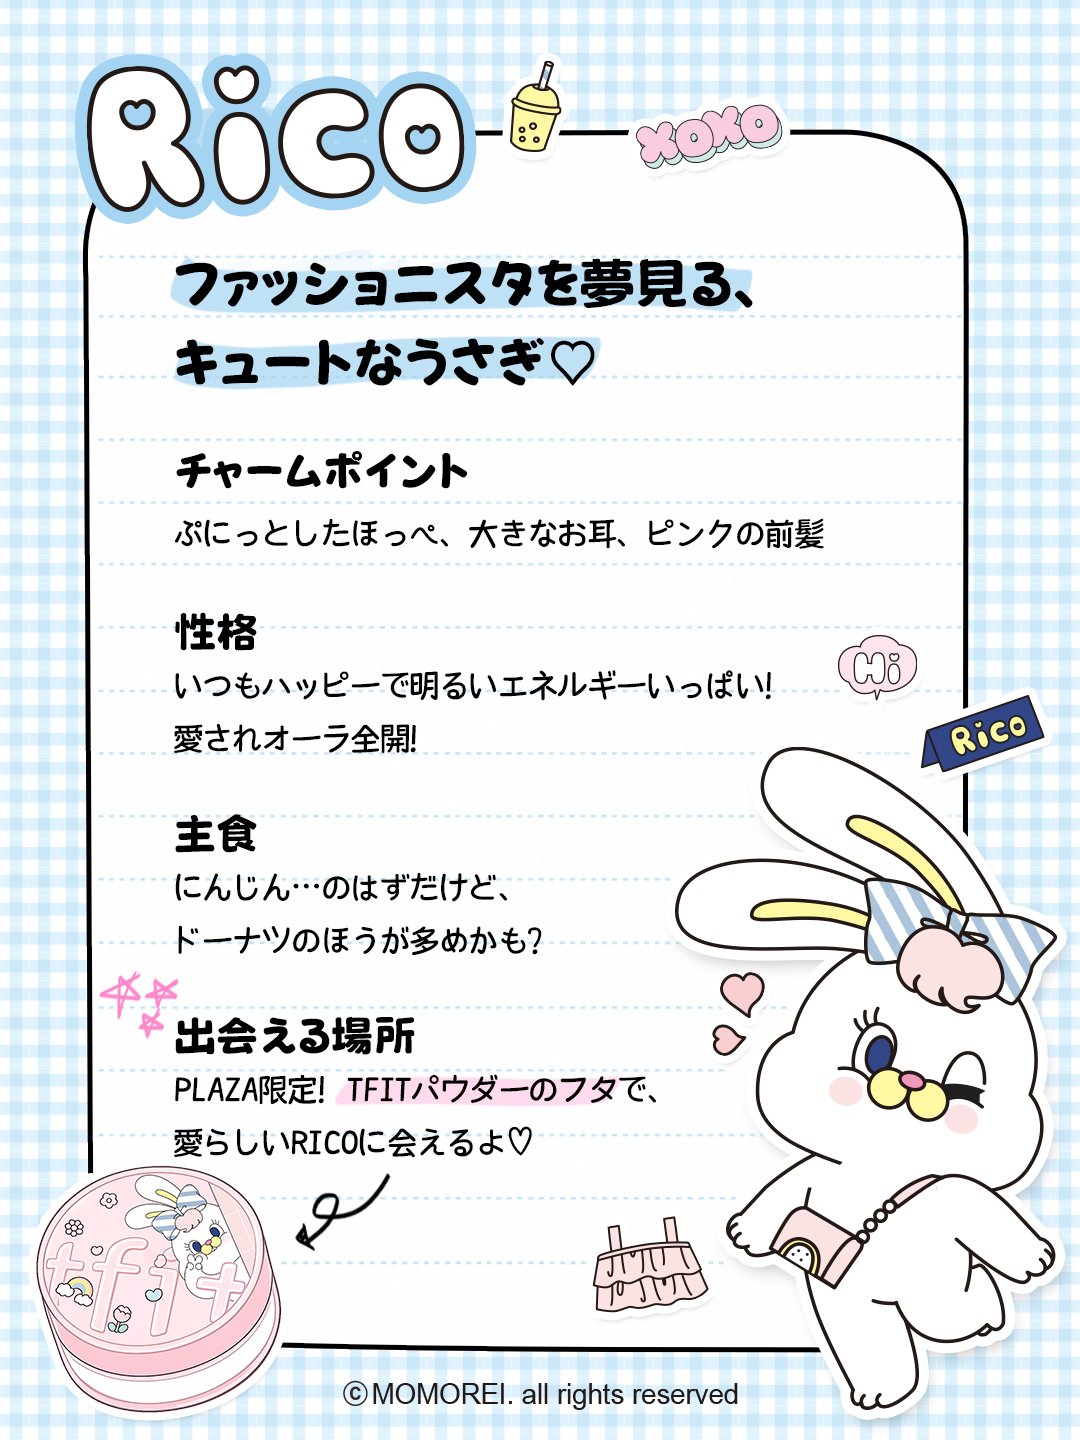 Rico
XOXO
ファッショニスタを夢見る、
キュートなうさぎ♡
チャームポイント
ぷにっとしたほっぺ、大きなお耳、ピンクの前髪
性格
いつもハッピーで明るいエネルギーいっぱい!
愛されオーラ全開!
Hi
Rico
主食
にんじん…のはずだけど、
ドーナツのほうが多めかも?
出会える場所
PLAZA限定! TFITパウダーのフタで、
愛らしいRICOに会えるよ♡
tfit
ⓒMOMOREI. all rights reserved